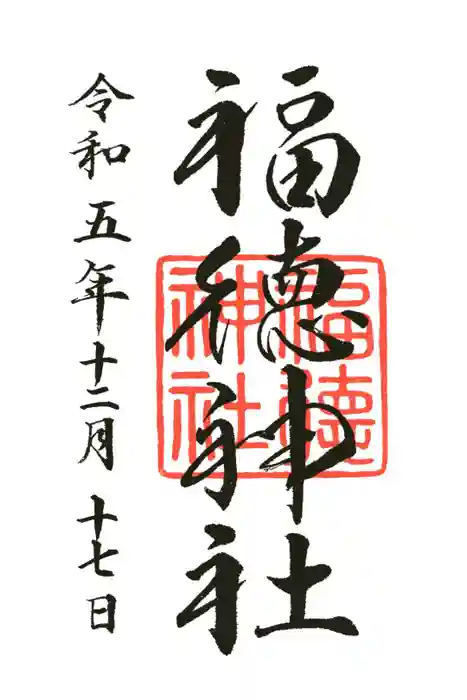 福德神社
福德神社
令和五年十二月十七日